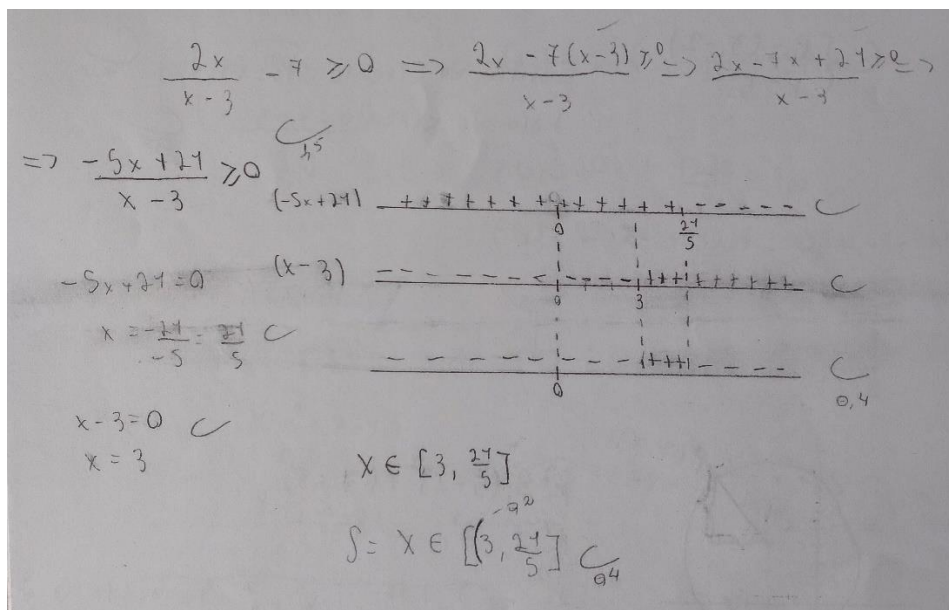 2x/(x - 3) - 7 ≥ 0 => (2x - 7(x-3))/(x-3) ≥ 0 => (2x - 7x + 21)/(x - 3) ≥ 0 =>
=> (-5x + 21)/(x - 3) ≥ 0
(-5x + 21) + + + + + + + + + + + + + + - - - - - C
0 21/5
-5x + 21 = 0 (x - 3) - - - - - - - - - - - + + + + + + + + + C
0 3
x = -21/-5 = 21/5 C
- - - - - - - - - + + + - - - - C
0 0,4
x - 3 = 0 C
x = 3
x ∈ [3, 21/5]
-0,2
S = x ∈ [(3, 21/5] C 0,4